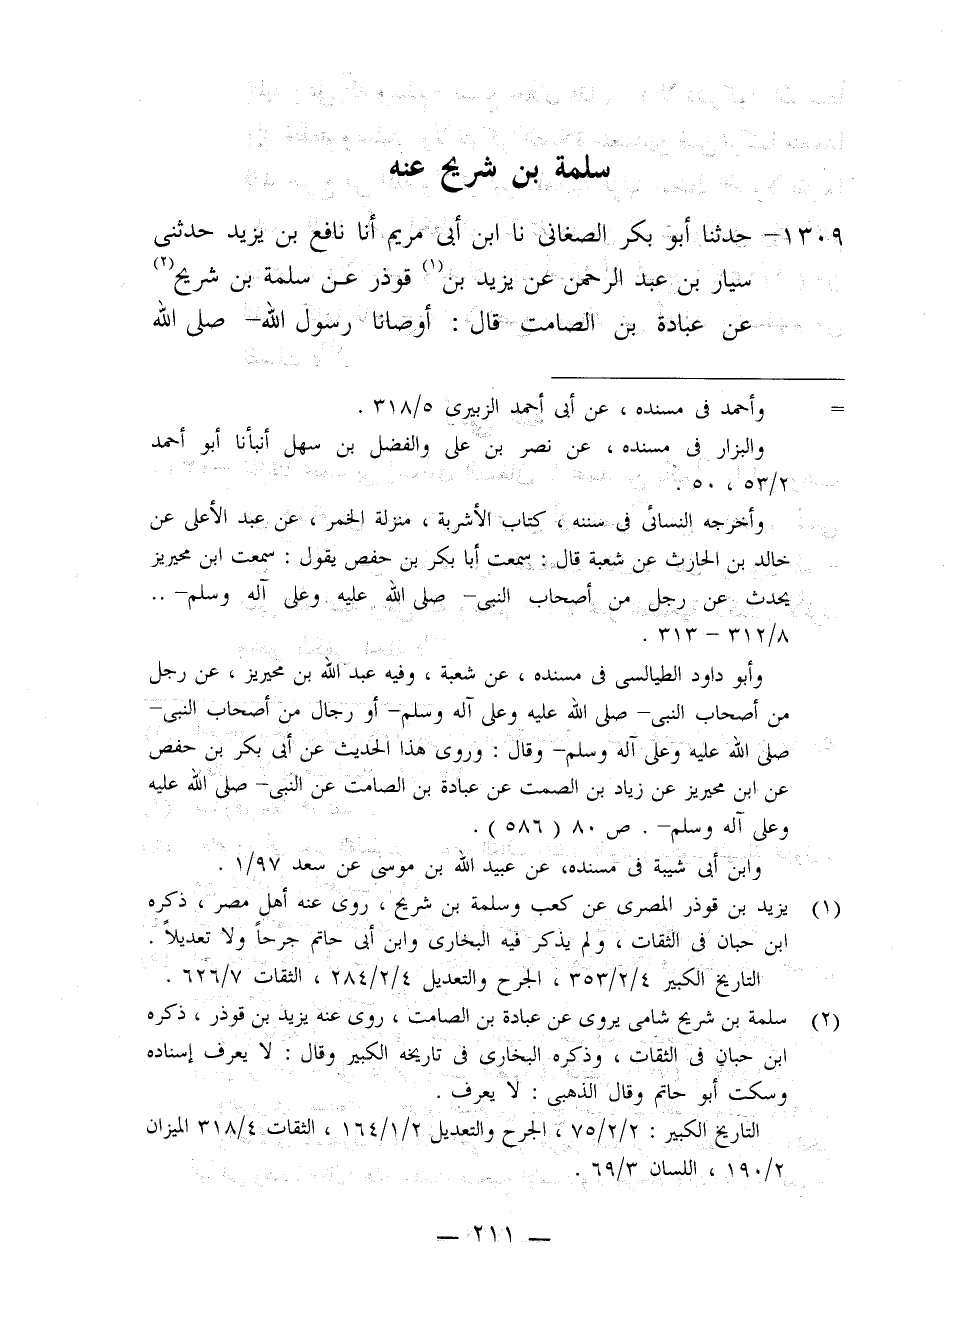 سلمة بن شريح عنه
١٣٠٩- حدثنا أبو بكر الصغانى نا ابن أبى مريم أنا نافع بن يزيد حدثنى
سيار بن عبد الرحمن عن يزيد بن(١) قوذر عـن سلمة بن شريح(٢)
عن عبادة بن الصامت قال : أوصانا رسول الله- صلى الله
= وأحمد فى مسنده ، عن أبى أحمد الزبيرى ٣١٨/٥ .
والبزار فى مسنده ، عن نصر بن على والفضل بن سهل أنبأنا أبو أحمد
٥٣/٢ ، ٥٠ .
وأخرجه النسائى فى سننه ، كتاب الأشربة ، منزلة الخمر ، عن عبد الأعلى عن
خالد بن الحارث عن شعبة قال : سمعت أبا بكر بن حفص يقول : سمعت ابن محيريز
يحدث عن رجل من أصحاب النبى- صلى الله عليه وعلى آله وسلم- ..
٣١٢/٨ - ٣١٣ .
وأبو داود الطيالسى فى مسنده ، عن شعبة ، وفيه عبد الله بن محيريز ، عن رجل
من أصحاب النبى- صلى الله عليه وعلى آله وسلم- أو رجال من أصحاب النبى-
صلى الله عليه وعلى آله وسلم- وقال : وروى هذا الحديث عن أبى بكر بن حفص
عن ابن محيريز عن زياد بن الصمت عن عبادة بن الصامت عن النبى- صلى الله عليه
وعلى آله وسلم- . ص ٨٠ ( ٥٨٦ ) .
وابن أبى شيبة فى مسنده، عن عبيد الله بن موسى عن سعد ١/٩٧ .
(١) يزيد بن قوذر المصرى عن كعب وسلمة بن شريح ، روى عنه أهل مصر ، ذكره
ابن حبان فى الثقات ، ولم يذكر فيه البخارى وابن أبى حاتم جرحاً ولا تعديلاً .
التاريخ الكبير ٣٥٣/٢/٤ ، الجرح والتعديل ٢٨٤/٢/٤ ، الثقات ٦٢٦/٧ .
(٢) سلمة بن شريح شامى يروى عن عبادة بن الصامت ، روى عنه يزيد بن قوذر ، ذكره
ابن حبان فى الثقات ، وذكره البخارى فى تاريخه الكبير وقال : لا يعرف إسناده
وسكت أبو حاتم وقال الذهبى : لا يعرف .
التاريخ الكبير : ٧٥/٢/٢ ، الجرح والتعديل ١٦٤/١/٢ ، الثقات ٣١٨/٤ الميزان
١٩٠/٢ ، اللسان ٦٩/٣ .
— ٢١١ —